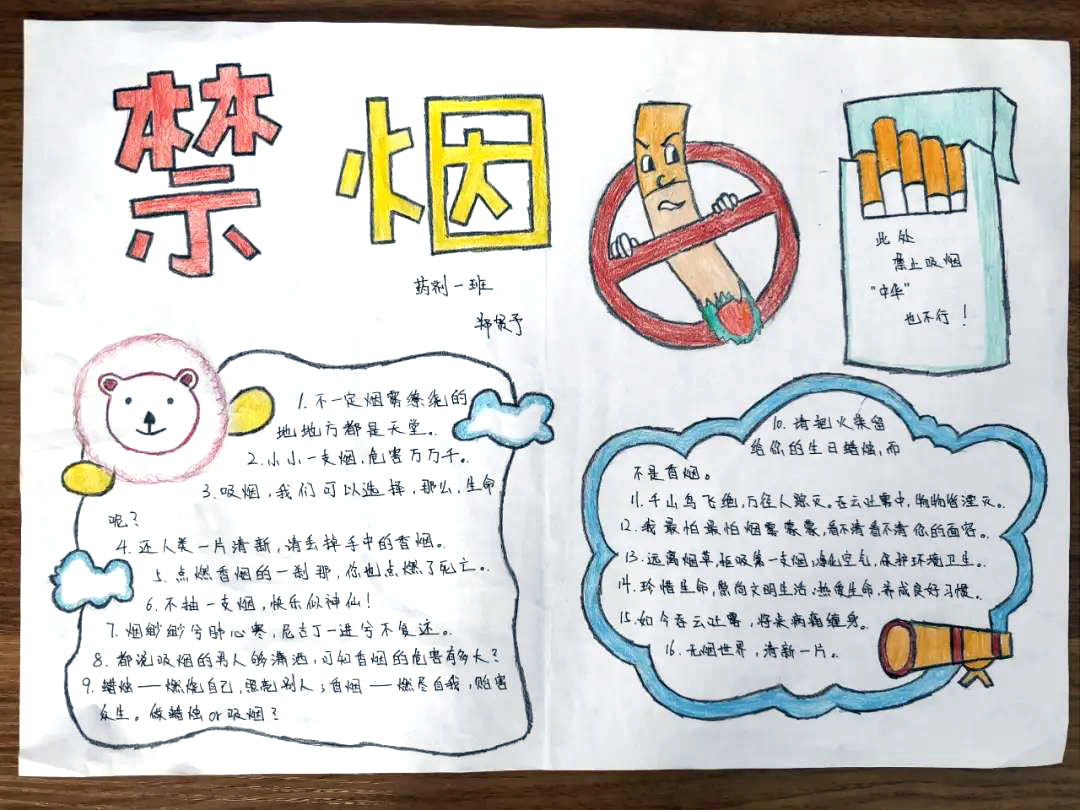 禁烟
药剂一班
郑
予
此处
禁止吸烟
“中华”
也不行!
1.不一定烟雾缭绕的
地地方都是天堂。
2.小小一支烟,危害万万千。
3.吸烟,我们可以选择,那么,生命
呢?
4.还人类一片清新,请丢掉手中的香烟。
5.点燃香烟的一刹那,你也点燃了死亡。
6.不抽一支烟,快乐似神仙!
7.烟缈缈兮肺心寒,尼古丁一进兮不复还。
8.都说吸烟的男人够潇洒,可知香烟的危害有多大?
9.蜡烛——燃烧自己,照亮别人;香烟——燃尽自我,贻害
众生。做蜡烛or吸烟?
10.请把火柴留
给你的生日蜡烛,而
不是香烟。
11.千山鸟飞绝,万径人踪灭。吞云吐雾中,物物皆湮灭。
12.我最怕最怕烟雾蒙蒙,看不清看不清你的面容。
13.远离烟草,拒吸第一支烟;净化空气,保护环境卫生。
14.珍惜生命,崇尚文明生活;热爱生命,养成良好习惯。
15.如今吞云吐雾,将来病痛缠身。
16.无烟世界,清新一片。